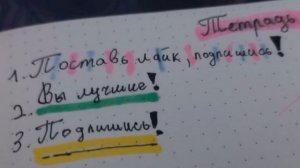 Тетрадь
1. Поставь лайк, подпишись!
2. Вы лучшие!
3. Подпишись!